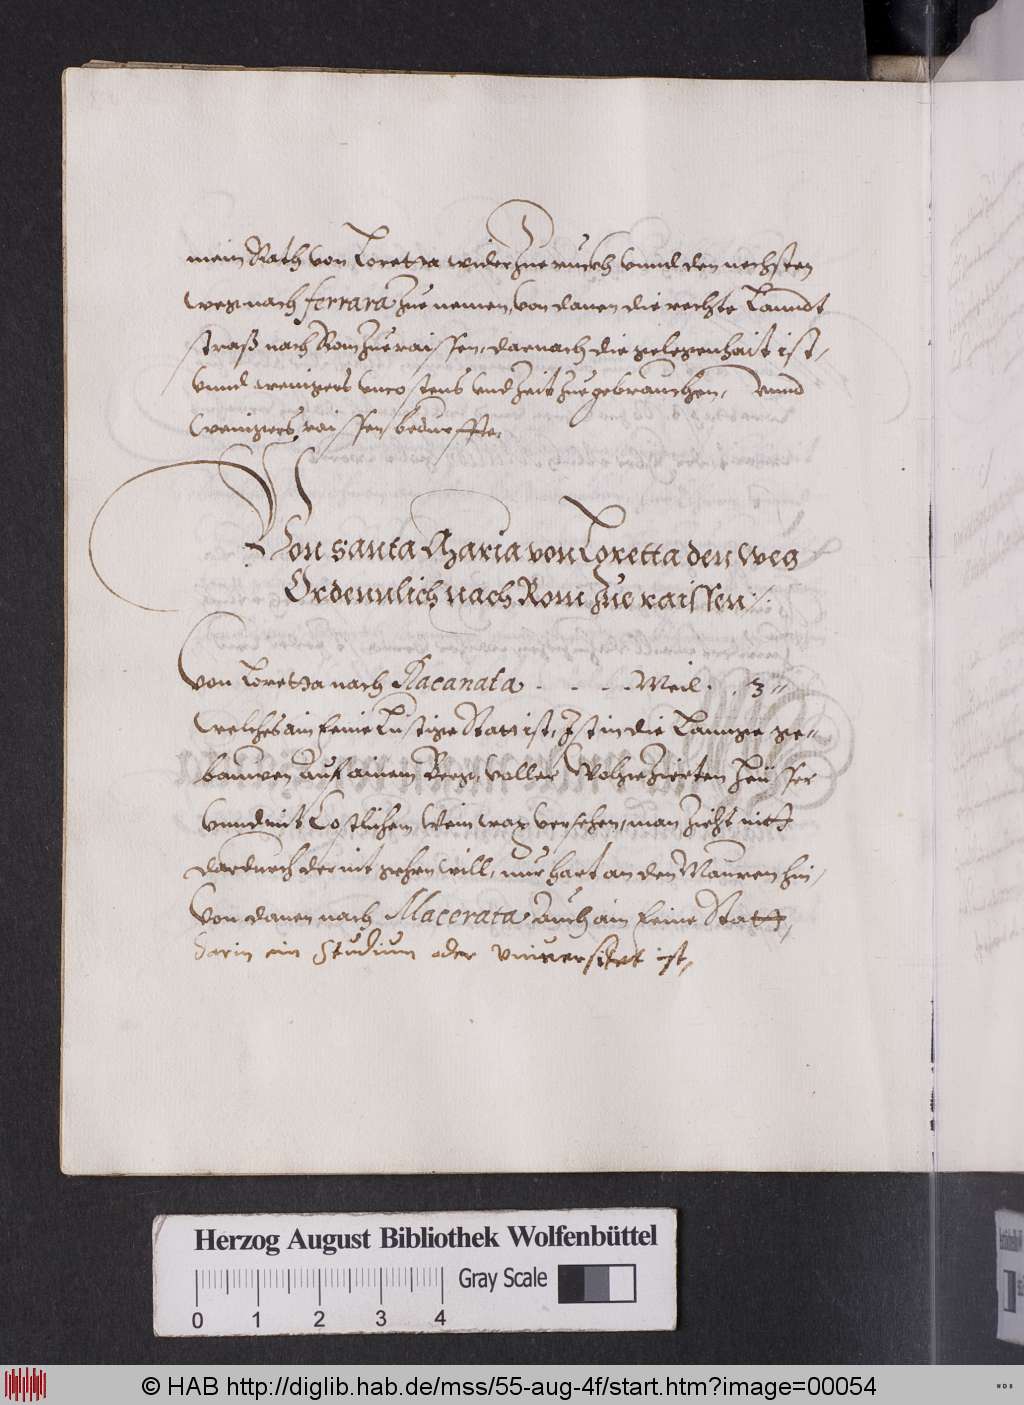 mein Rath von Loretta wider zue ruckh vnnd den nechsten
weg nach ferrara zue nemen, von danen die rechte Lanndt
straß nach Rom zue raissen, darnach die gelegenhait ist,
vnnd wenigers vncostens vnd Zeit zue gebrauchen, vnnd
wenigers raissen bedurffte.
Von Santa Maria von Loretta den weg
Ordennlich nach Rom zue raissen
Von Loretta nach Racanata . . . . Meil . . 3
welches ain feine Lustige Statt ist, Ist in die Lannge ge=
bauwen auf ainem Berg, voller Wolgezierten Heüsser
vnnd mit Costlichem Wein wax versehen, man zieht nitt
dardurch der nit gehrn will, nur hart an den Mauren hin,
Von danen nach Macerata auch ain feine Statt,
darin ein Studium oder vniversitet ist,
Herzog August Bibliothek Wolfenbüttel
Gray Scale
0 1 2 3 4
© HAB http://diglib.hab.de/mss/55-aug-4f/start.htm?image=00054